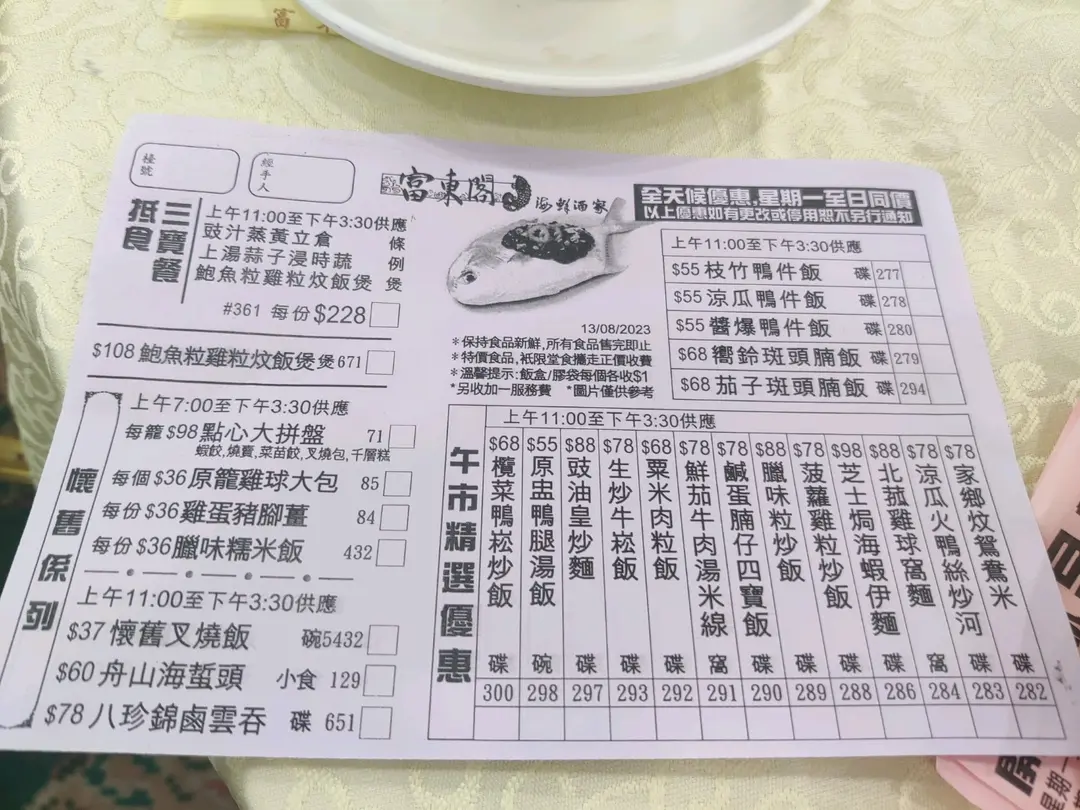 富
檯號
經手人
富東閣
海鮮酒家
全天候優惠,星期一至日同價
以上優惠如有更改或停用恕不另行通知
三寶餐
抵食
上午11:00至下午3:30供應
豉汁蒸黃立倉 條
上湯蒜子浸時蔬 例
鮑魚粒雞粒炆飯煲 煲
#361 每份$228
$108 鮑魚粒雞粒炆飯煲 煲671
懷舊係列
上午7:00至下午3:30供應
每籠$98點心大拼盤 71
蝦餃,燒賣,菜苗餃,叉燒包,千層糕
每個$36原籠雞球大包 85
每份$36雞蛋豬腳薑 84
每份$36臘味糯米飯 432
上午11:00至下午3:30供應
$37懷舊叉燒飯 碗5432
$60舟山海蜇頭 小食 129
$78八珍錦鹵雲吞 碟 651
13/08/2023
*保持食品新鮮,所有食品售完即止
*特價食品,衹限堂食攜走正價收費
*溫馨提示:飯盒/膠袋每個各收$1
*另收加一服務費 *圖片僅供參考
上午11:00至下午3:30供應
$55枝竹鴨件飯 碟 277
$55涼瓜鴨件飯 碟 278
$55醬爆鴨件飯 碟 280
$68嚮鈴斑頭腩飯 碟 279
$68茄子斑頭腩飯 碟 294
午市精選優惠
上午11:00至下午3:30供應
$68欖菜鴨崧炒飯 碟 300
$55原盅鴨腿湯飯 碗 298
$88豉油皇炒麵 碟 297
$78生炒牛崧飯 碟 293
$68粟米肉粒飯 碟 292
$78鮮茄牛肉湯米線 窩 291
$78鹹蛋腩仔四寶飯 碟 290
$88臘味粒炒飯 碟 289
$78菠蘿雞粒炒飯 碟 288
$98芝士焗海蝦伊麵 碟 286
$88北菰雞球窩麵 窩 284
$78涼瓜火鴨絲炒河 碟 283
$78家鄉炆鴛鴦米 碟 282
星期一